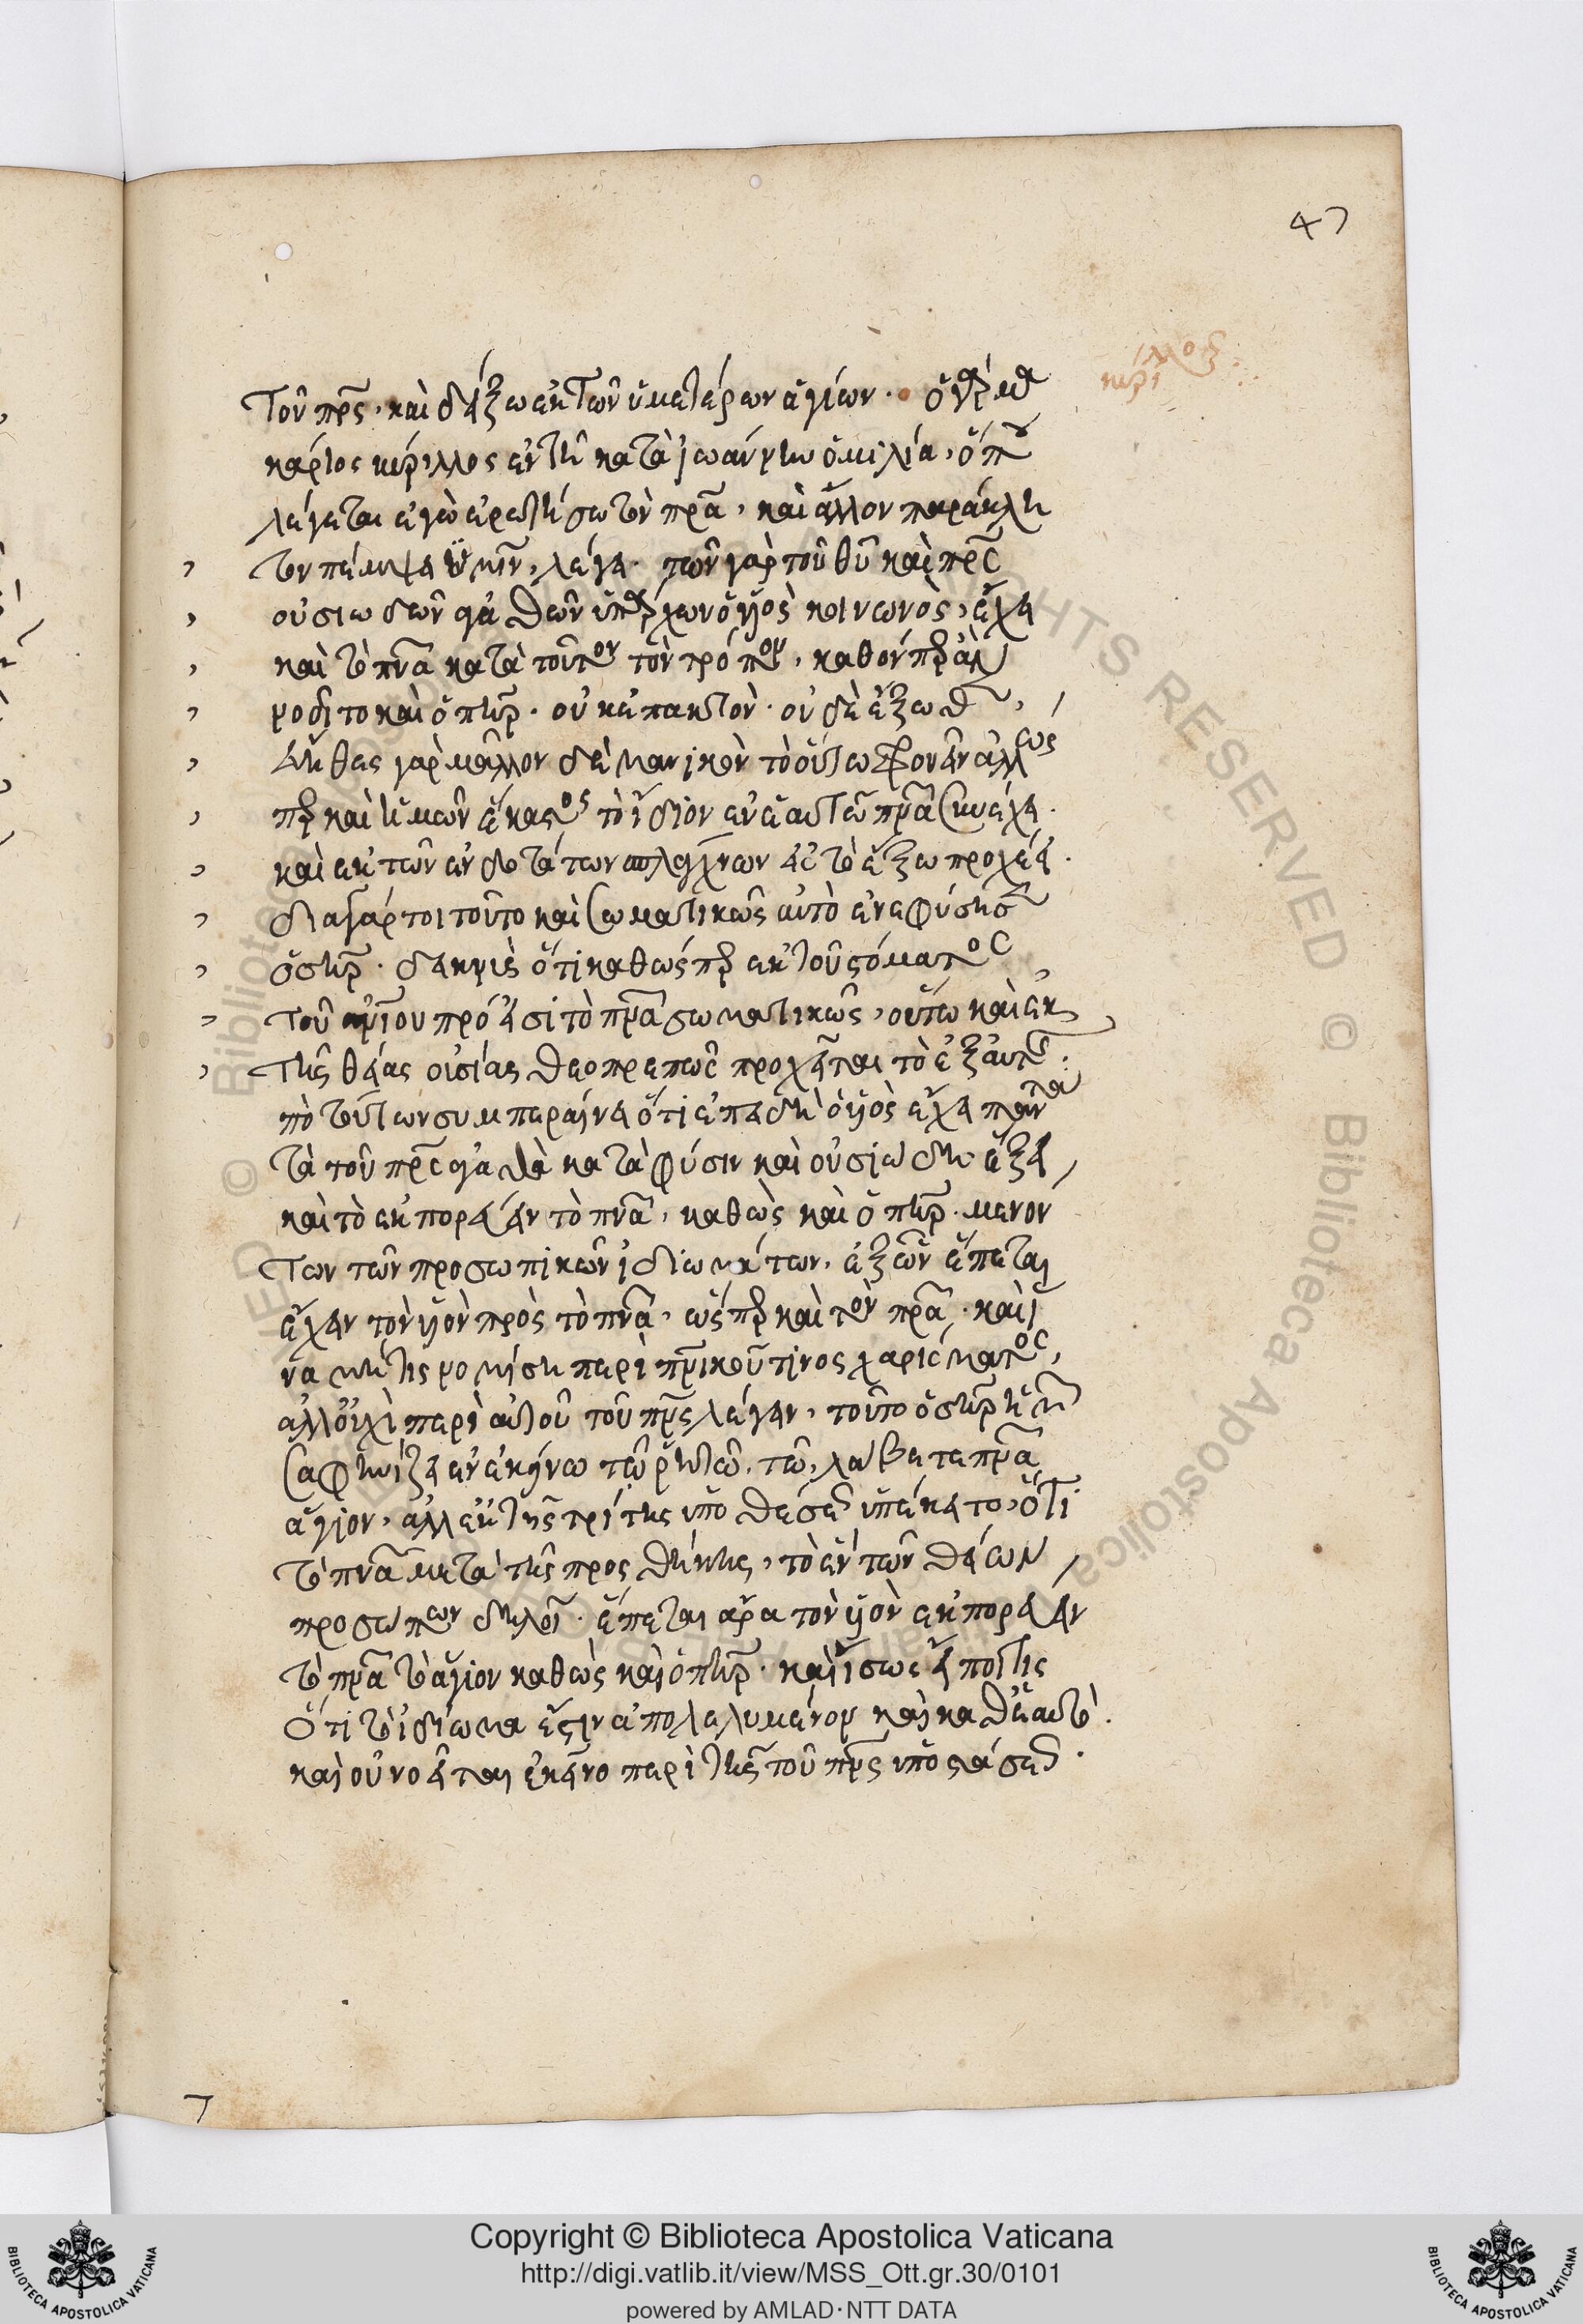 47
κύριλλος
τοῦ πρς. καὶ δείξω ἐκ τῶν ὑμετέρων ἁγίων. ὁ γὰρ μα
κάριος κύριλλος ἐν τῇ κατὰ ἰωάννην ὁμιλία, ὅπου
λέγεται ἐγὼ ἐρωτήσω τὸν πρα, καὶ ἄλλον παράκλη
τον πέμψει ὑμῖν, λέγει. τῶν γὰρ τοῦ θυ καὶ πρς
οὐσιωδῶν ἀγαθῶν ὑπάρχων ὁ υἱὸς κοινωνὸς, ἔχει
καὶ τὸ πνα κατὰ τοῦτον τὸν τρόπον, καθόνπερ ἂν
νοοῖτο καὶ ὁ πηρ. οὐκ ἐπακτὸν. οὐδὲ ἔξωθεν,
εὔηθες γὰρ μᾶλλον δὲ μανικὸν τὸ οὕτω φρονεῖν ἀλλ ὡς
περ καὶ ἡμῶν ἕκαστος τὸ ἴδιον ἐν ἑαυτῷ πνα συνέχει.
καὶ ἐκ τῶν ἐνδοτάτων σπλάγχνων εἰς τὸ ἔξω προχέει.
διαγάρτοι τοῦτο καὶ σωματικῶς αὐτὸ ἐνεφύσησεν
ὁ σηρ. δεικνὺς ὅτι καθώσπερ ἐκ τοῦ στόματος
τοῦ ανίου πρόεισι τὸ πνα σωματικῶς, οὕτω καὶ ἐκ
τῆς θείας οὐσίας θεοπρεπῶς προχεῖται τὸ ἐξ αὐτῆς.
πὸ τούτων συμπεραίνει ὅτι ἐπειδὴ ὁ υἱὸς ἔχει πάντα
τὰ τοῦ πρς ἀγαθὰ κατὰ φύσιν καὶ οὐσιώδη ἕξει
καὶ τὸ ἐκπορεύειν τὸ πνα, καθὼς καὶ ὁ πηρ. μενόν
των τῶν προσωπικῶν ἰδιωμάτων. ἐξ ὧν ἕπεται
ἔχειν τὸν υἱὸν πρὸς τὸ πνα, ὥσπερ καὶ τὸν πρα. καὶ ἵ
να μή τις νομίση περὶ πνικοῦ τινος χαρίσματος,
ἀλλ οὐχὶ περὶ αὐτοῦ τοῦ πνς λέγειν, τοῦτο ὁ σηρ ἡμῖν
σαφηνίζει ἐν ἐκείνω τῶ ῥητῶ. τῶ, λάβετε πνα
ἅγιον, ἀλλ ἐκ τῆς τρίτης ὑποθέσεως ὑπέκειτο, ὅτι
τὸ πνα μετὰ τῆς προσθήκης, τὸ ἓν τῶν θείων
προσώπων δηλοῖ. ἕπεται ἄρα τὸν υἱὸν ἐκπορεύειν
τὸ πνα τὸ ἅγιον καθὼς καὶ ὁ πηρ. καὶ ἴσως εἴποι τις
ὅτι τὸ ἰδίωμα ἐστιν ἀπολελυμένον καὶ καθ ἑαυτὸ.
καὶ οὐ νοεῖται ἐκεῖνο περὶ τῆς τοῦ πνς ὑποστάσεως.
Copyright © Biblioteca Apostolica Vaticana
http://digi.vatlib.it/view/MSS_Ott.gr.30/0101
powered by AMLAD·NTT DATA